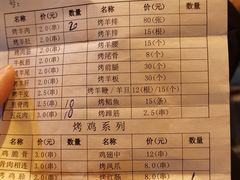 名称 价(元) 数量 名称 价(元) 数量
烤羊肉 2.0(串) 20 烤羊排 80(张)
烤羊肚 2.0(串) 烤羊排 15(根)
烤肉筋 2.0(串) 烤羊腰 15(个)
羊板筋 2.5(串) 烤尾骨 8(个)
2.5(串) 烤前腿 30(个)
2.5(串) 烤羊板 30(个)
烤羊鞭/羊旦 12(根)/15(个)
骨肉 2.5(串) 18 烤鱿鱼 15(条)
五花肉 3.0(串) 烤蹄筋 2.5(串)
烤鸡系列
名称 价(元) 数量 名称 价(元) 数量
鸡脆骨 3.0(串) 鸡翅中 12(串)
骨肉相连 3.0(串) 烤凤爪 8.0(串)
烤鸡 3.0(串) 8.0(串)